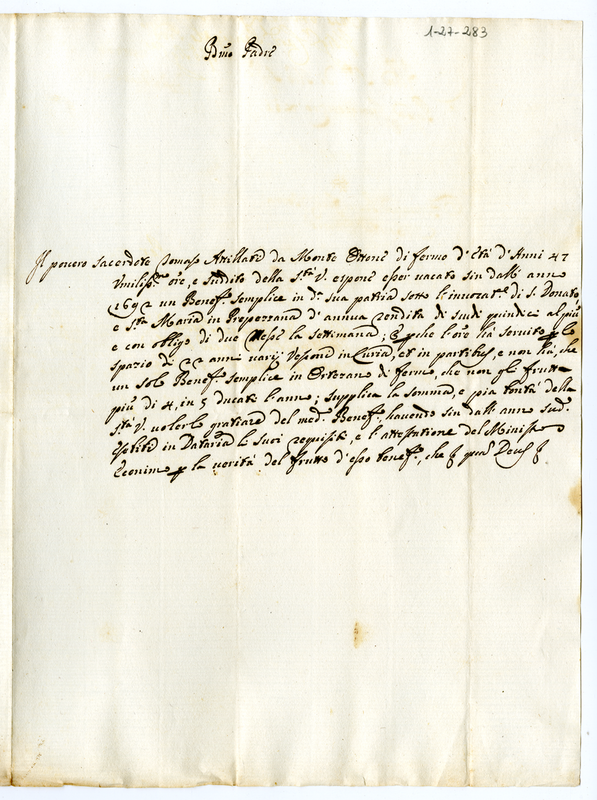 1-27-283
Bmo Padre
Il povero sacerdote Tomaso Attillati da Monte Ottone di fermo d'età d'Anni 47
Vmiliss.o ore, e suddito della S.tà V. espone esser vacato sin dall' anno
1692 un Benef.o semplice in d.a sua patria sotto l'invocat.e di S. Donato
e S.ta Maria in Trepezzana d'annua rendita di scudi quindici al più
e con obligo di due Messe la settimana; E perche l'ore hà servito per lo
spazio di 22 anni varij Vescovi in Curia, et in partibus, e non hà, che
un solo Benef.o semplice in Ortezano di fermo, che non gli frutta
più di 4, in 5 ducati l'anno; supplica la somma, e pia bontà della
S.tà V. volerlo gratiare del med.o Benef.o, havendo sin dall' anno sud.o
esibito in Dataria li suoi requisiti, e l'attestatione del Ministro
Econimo per la verità del frutto d'esso benef.o, che